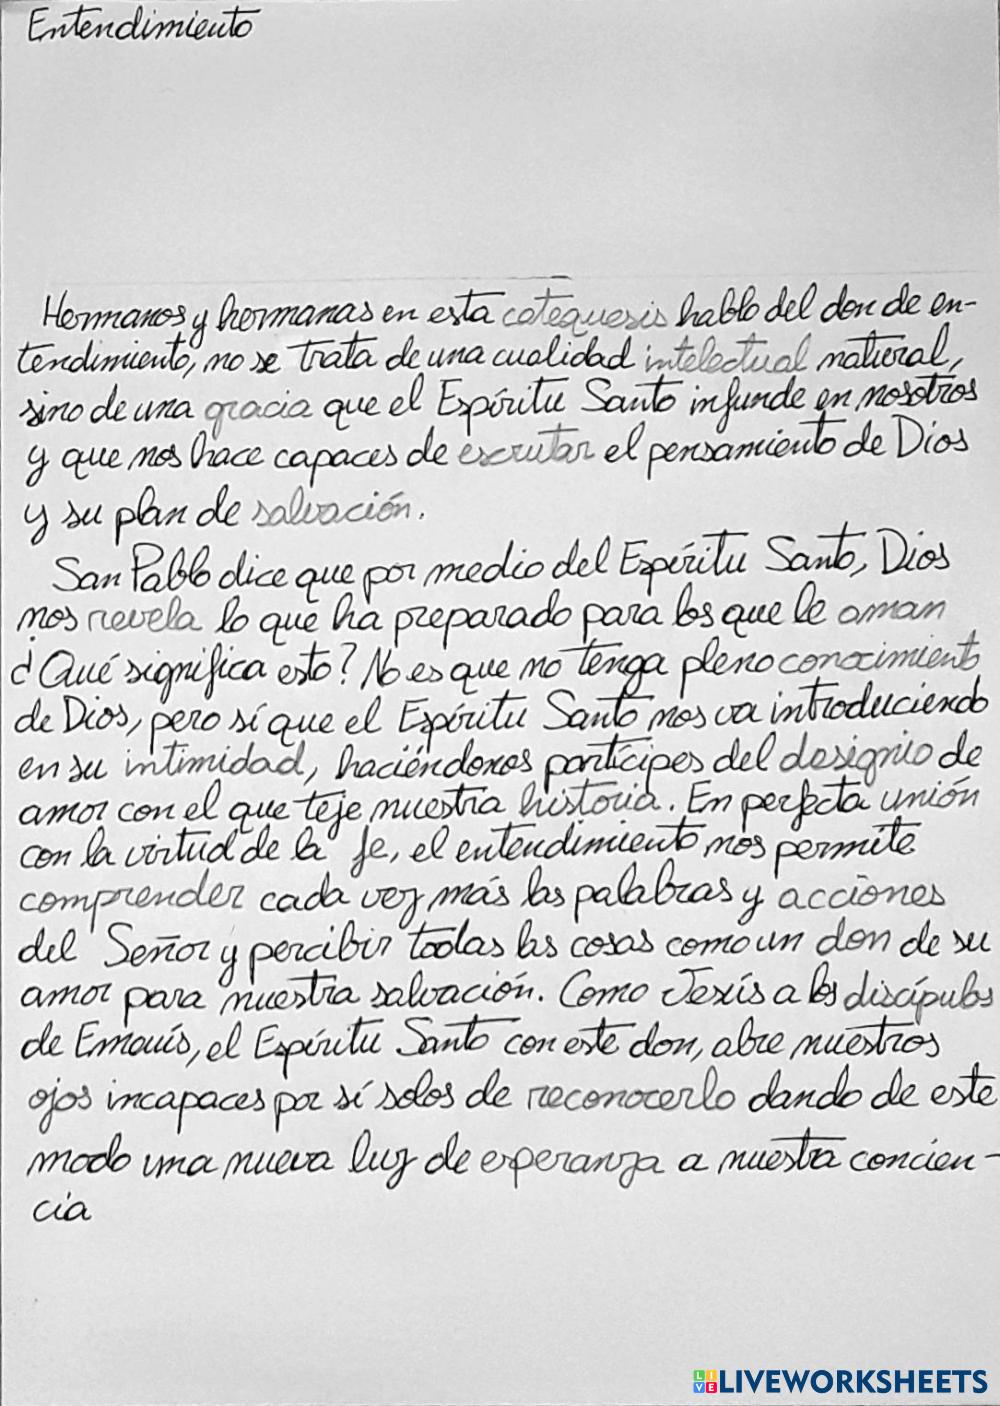 Entendimiento
Hermanos y hermanas en esta catequesis hablo del don de en-
tendimiento, no se trata de una cualidad intelectual natural,
sino de una gracia que el Espíritu Santo infunde en nosotros
y que nos hace capaces de escrutar el pensamiento de Dios
y su plan de salvación.
San Pablo dice que por medio del Espíritu Santo, Dios
nos revela lo que ha preparado para los que le aman
¿Qué significa esto? No es que no tenga pleno conocimiento
de Dios, pero sí que el Espíritu Santo nos va introduciendo
en su intimidad, haciéndonos partícipes del designio de
amor con el que teje nuestra historia. En perfecta unión
con la virtud de la fe, el entendimiento nos permite
comprender cada vez más las palabras y acciones
del Señor y percibir todas las cosas como un don de su
amor para nuestra salvación. Como Jesús a los discípulos
de Emaús, el Espíritu Santo con este don, abre nuestros
ojos incapaces por sí solos de reconocerlo dando de este
modo una nueva luz de esperanza a nuestra concien-
cia
LIVEWORKSHEETS